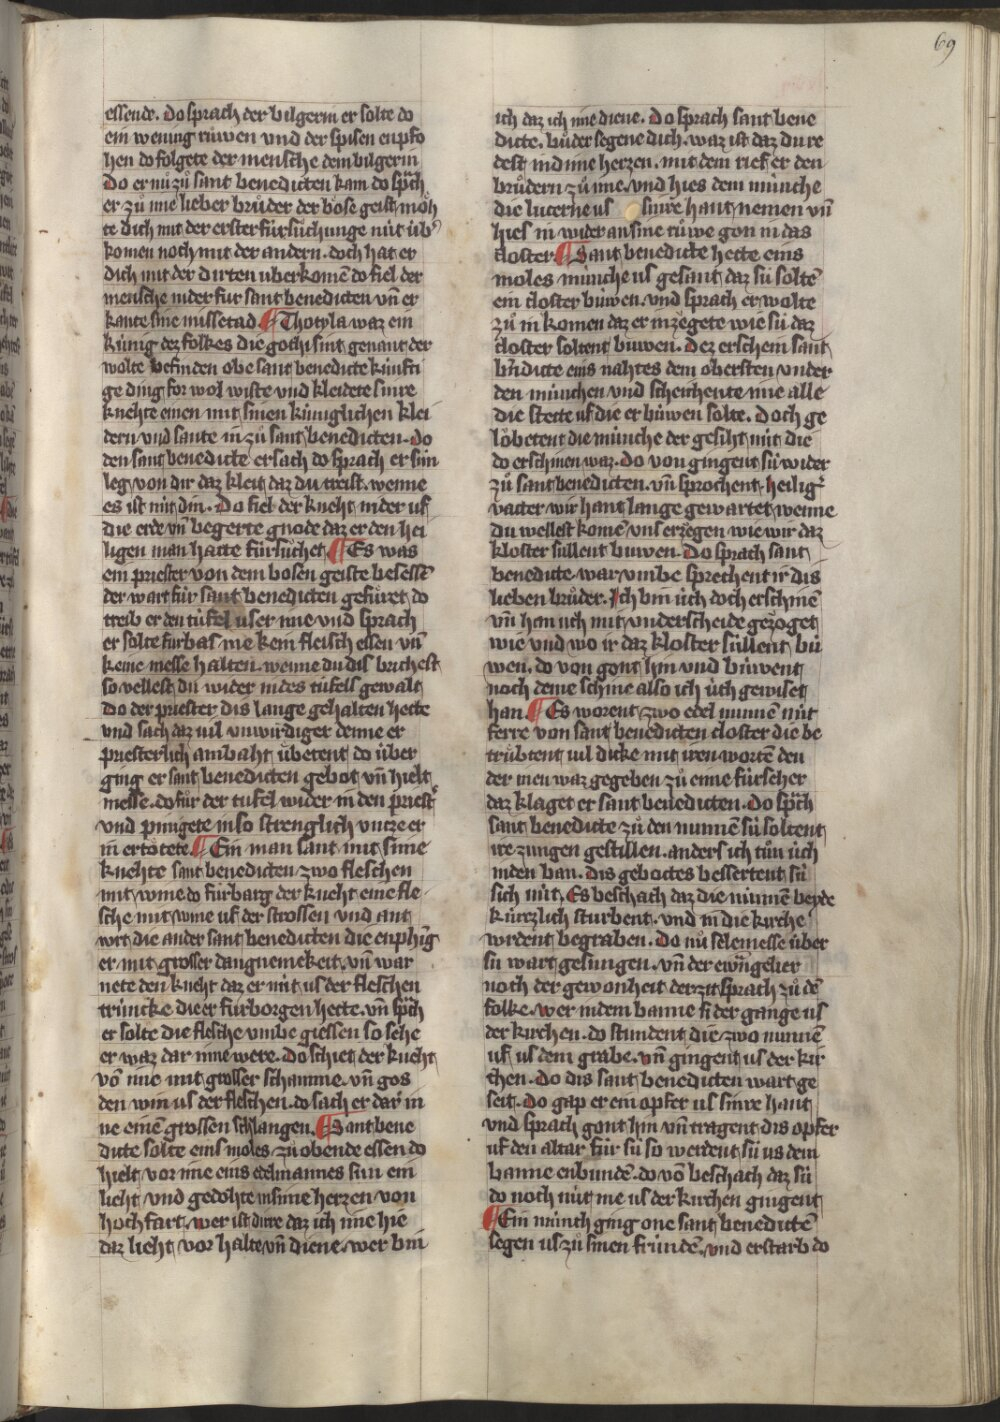 69
essende. Do sprach der bilgerin er solte do
ein wening růwen vnd der spisen enpfo
hen do folgete der mensche dem bilgerin
Do er nů zů sant benedicten kam do spͣch
er zů ime lieber brůder der böse geist moͤh
te dich mit der erster fürsůchunge nüt übͤ
komen noch mit der andern. doch hat er
dich mit der dirten uberkomē do fiel der
mensche nider für sant benedicten vn̄ er
kante sine missetad ¶ Thotyla waz ein
künig dez folkes die gothi sint genant der
wolte befinden obe sant benedicte künfti
ge ding for wol wiste vnd kleidete sinre
knehte einen mit sinen küniglichen klei
dern vnd sante in zů sant benedicten. Do
den sant benedicte ersach do sprach er sun
leg von dir daz kleit daz du treist. wenne
es ist nüt din. Do fiel der kneht nider uf
die erde vn̄ begerte gnode daz er den hei
ligen man hatte fürsůchet ¶ Es was
ein priester von dem bosen geiste besessē
der wart für sant benedicten gefüret do
treib er den tüfel user ime vnd sprach
er solte fürbas me kein fleisch essen vn̄
keine messe halten. wenne du dis brichest
so vellest du wider in des tüfels gewalt
Do der priester dis lange gehalten hette
vnd sach daz vil vnwirdiger denne er
priesterlich ambaht übetent do über
ging er sant benedicten gebot vn̄ hielt
messe. do fůr der tufel wider in den priestͤ
vnd pinigete in so strenglich vntze er
in ertötete. ¶ Ein man sant mit sime
knehte sant benedicten zwo fleschen
mit wine do fürbarg der kneht eine fle
sche mit wine uf der strossen vnd ant
wrt die ander sant benedicten die enphīg
er mit grosser dangnemekeit. vn̄ war
nete den kneht daz er nüt us der fleschen
trüncke die er fürborgen hette. vn̄ spͣch
er solte die flesche vmbe giessen so sehe
er waz dar inne were. Do schiet der kneht
vō ime mit grosser schamme. vn̄ gos
den win us der fleschen. do sach er dar in
ne einē grossen schlangen. ¶ Sant bene
dicte solte eins moles zů obende essen do
hielt vor ime eins edelmannes sun ein
lieht vnd gedohte in sime herzen von
hochfart. wer ist dirre daz ich ime hie
daz lieht vor halte vn̄ diene. wer bin
ich daz ich ime diene. Do sprach sant bene
dicte. brůder segene dich. waz ist daz du re
dest in dime herzen. mit dem rief er den
brůdern zů ime. vnd hies dem münche
die lucerne us sinre hant nemen vn̄
hies in wider an sine růwe gon in das
closter ¶ Sant benedicte hette eins
moles münche us gesant daz sü soltē
ein closter büwen. vnd sprach er wolte
zů in komen daz er in zegete wie sü daz
closter soltent buwen. Dez erschein sant
bn̄dicte eins nahtes dem obersten vnder
den münchen vnd scheichente ime alle
die stette uf die er büwen solte. Doch ge
löbetent die münche der gesiht nüt die
do erschinen waz. Do von gingent sü wider
zů sant benedicten. vn̄ sprochent. heiligͤ
vatter wir hant lange gewartet wenne
du wellest komē vns erzegen wie wir daz
kloster süllent buwen. Do sprach sant
benedicte. war vmbe sprechent ir dis
lieben brůder. Ich bin üch doch erschinē
vn̄ han uch mit vnderscheide gezöget
wie vnd wo ir daz kloster süllent bü
wen. do von gont hin vnd büwent
noch deme schine also ich üch gewiset
han. ¶ Es worent zwo edel nunnē nüt
ferre von sant benedicten closter die be
trůbtent vil dicke mit iren wortē den
der inen waz gegeben zů eime fürseher
daz klaget er sant benedicten. Do spͣch
sant benedicte zů den nunnē sü soltent
ire zungen gestillen. anders ich tůn üch
in den ban. dis gebottes bessertent sü
sich nüt. Es beschach daz die nunnē beyde
kürtzlich sturbent. vnd in die kirche
wrdent begraben. Do nů selemesse über
sü wart gesungen. vn̄ der ewangelier
noch der gewonheit der zit sprach zů dē
folke. wer in dem banne si der gange us
der kirchen. do stundent die zwo nunnē
uf us dem grabe. vn̄ gingent us der kir
chen. Do dis sant benedicten wart ge
seit. Do gap er ein opfer us sinre hant
vnd sprach gont hin vn̄ tragent dis opfer
uf den altar für sü so werdent sü us dem
banne enbundē. do vō beschach daz sü
do noch nüt me us der kirchen gingent
¶ Ein münch ging one sant benedictē
segen us zů sinen fründē. vnd erstarb do